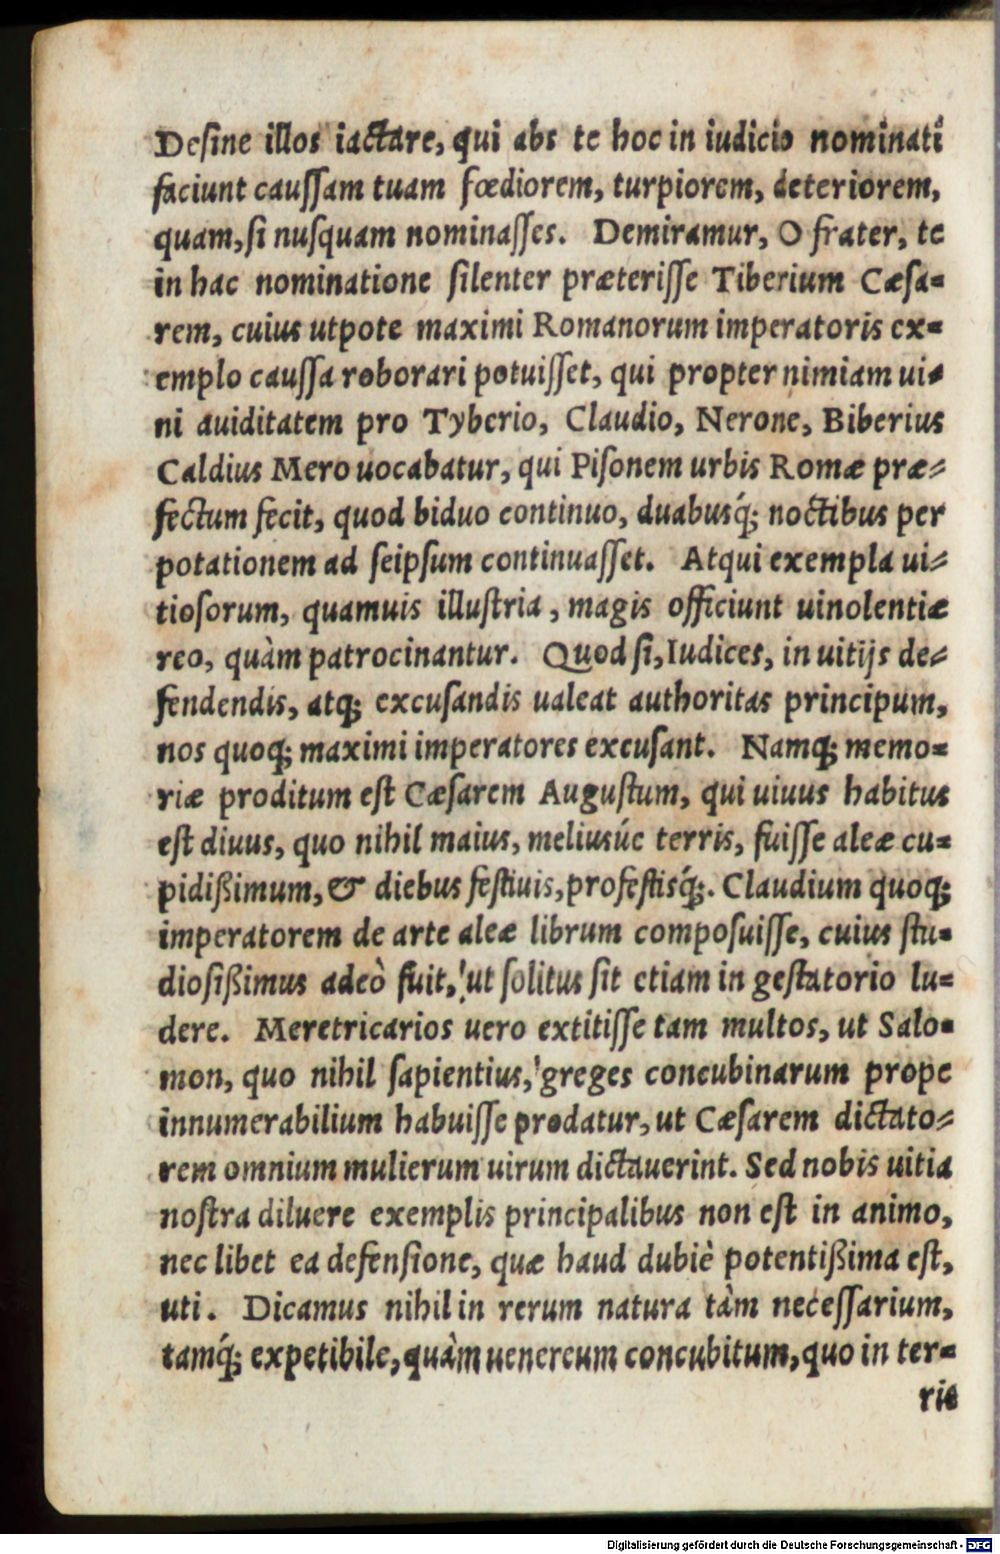 Desine illos iactare, qui abs te hoc in iudicio nominati
faciunt caussam tuam fœdiorem, turpiorem, deteriorem,
quam, si nusquam nominasses. Demiramur, O frater, te
in hac nominatione silenter præterisse Tiberium Cæsa-
rem, cuius utpote maximi Romanorum imperatoris ex-
emplo caussa roborari potuisset, qui propter nimiam ui-
ni auiditatem pro Tyberio, Claudio, Nerone, Biberius
Caldius Mero uocabatur, qui Pisonem urbis Romæ præ-
fectum fecit, quod biduo continuo, duabusq́; noctibus per
potationem ad seipsum continuasset. Atqui exempla ui-
tiosorum, quamuis illustria, magis officiunt uinolentiæ
reo, quàm patrocinantur. Quod si, Iudices, in uitijs de-
fendendis, atq; excusandis ualeat authoritas principum,
nos quoq; maximi imperatores excusant. Namq; memo-
riæ proditum est Cæsarem Augustum, qui uiuus habitus
est diuus, quo nihil maius, meliusúe terris, fuisse aleæ cu-
pidißimum, & diebus festiuis, profestisq́;. Claudium quoq;
imperatorem de arte aleæ librum composuisse, cuius stu-
diosißimus adeò fuit, ut solitus sit etiam in gestatorio lu-
dere. Meretricarios uero extitisse tam multos, ut Salo-
mon, quo nihil sapientius, greges concubinarum prope
innumerabilium habuisse prodatur, ut Cæsarem dictato-
rem omnium mulierum uirum dictauerint. Sed nobis uitia
nostra diluere exemplis principalibus non est in animo,
nec libet ea defensione, quæ haud dubiè potentißima est,
uti. Dicamus nihil in rerum natura tàm necessarium,
tamq́; expetibile, quàm uenereum concubitum, quo in ter-
ris
Digitalisierung gefördert durch die Deutsche Forschungsgemeinschaft - DFG